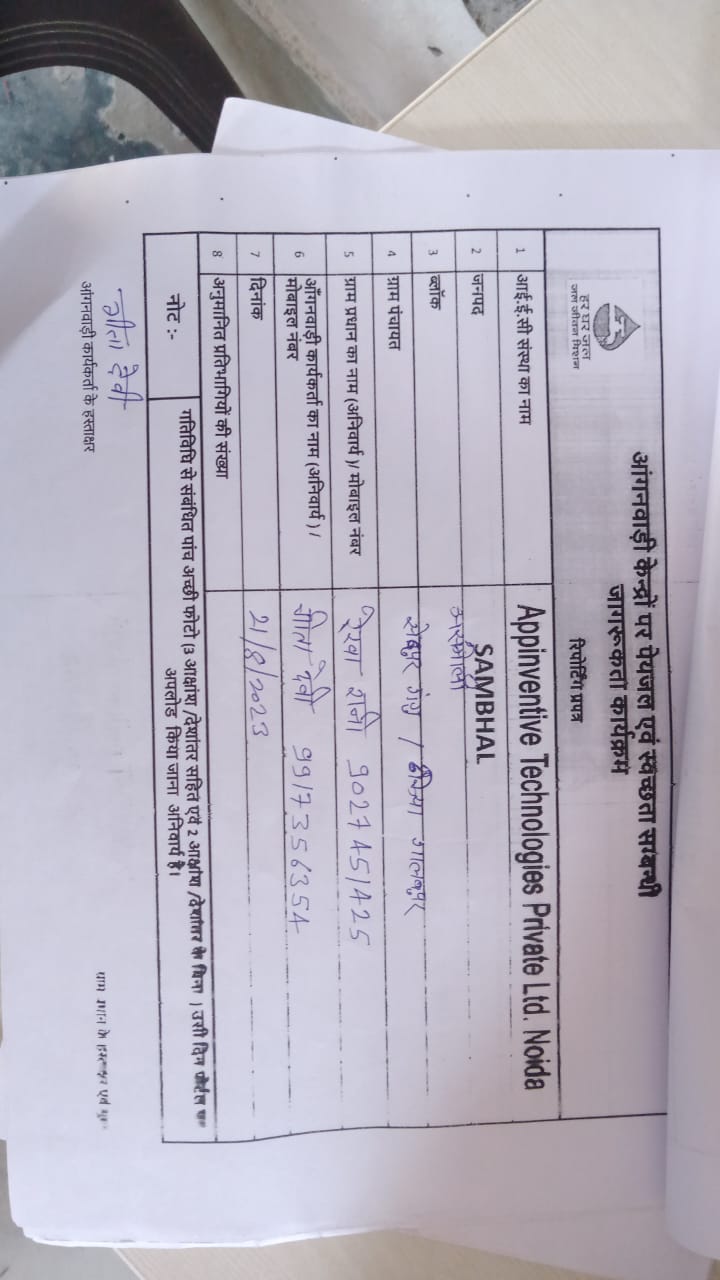 हर घर जल
जल जीवन मिशन
आंगनवाड़ी केन्द्रों पर पेयजल एवं स्वच्छता सम्बन्धी
जागरूकता कार्यक्रम
रिपोर्टिंग प्रपत्र
1 आई.ई.सी संस्था का नाम Appinventive Technologies Private Ltd. Noida
2 जनपद SAMBHAL
3 ब्लॉक असमोली
4 ग्राम पंचायत
5 ग्राम प्रधान का नाम (अनिवार्य )/ मोबाइल नंबर रेखा रानी 9027451425
6 आँगनवाड़ी कार्यकर्ता का नाम (अनिवार्य ) /
मोबाइल नंबर गीता देवी 9917356354
7 दिनांक 21/8/2023
8 अनुमानित प्रतिभागियों की संख्या
नोट :- गतिविधि से संबंधित पांच अच्छी फोटो (3 आक्षांश /देशांतर सहित एवं 2 आक्षांश /देशांतर के बिना ) उसी दिन पोर्टल पर
अपलोड किया जाना अनिवार्य है।
गीता देवी
आंगनवाड़ी कार्यकर्ता के हस्ताक्षर
ग्राम प्रधान के हस्ताक्षर एवं